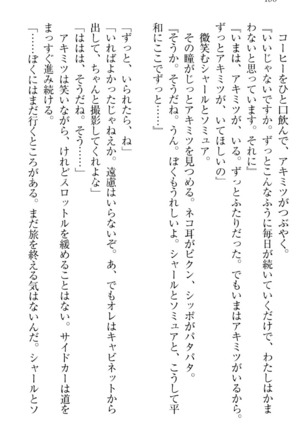 コーヒーをひと口飲んで、アキミツがつぶやく。
『いいじゃないですか。ずっとこんなふうに毎日が続いていくだけで、わたしはかま
わないと思っています。それに』
『いまは、アキミツが、いる。ずっとふたりだった。でもいまはアキミツがいるから。
ずっとアキミツが、いてほしいの』
微笑むシャールとソミュア。
その瞳がじっとアキミツを見つめる。ネコ耳がピクン、シッポがパタパタ。
『そうか。そうだね。うん。ぼくもうれしいよ。シャールとソミュアと、こうして平
和にここでずっと……』
「ずっと、いられたら、ね」
「いればよかったじゃねえか。遠慮はいらないぞ。あ、でもオレはキャビネットから
出して、ちゃんと撮影してくれよな」
「ははは、そうだね。そう……」
アキミツは笑いながら、けれどスロットルを緩めることはない。サイドカーは道を
まっすぐ進み続ける。
「……ぼくにはまだ行くところがある。まだ旅を終える気はないんだ。シャールとソ